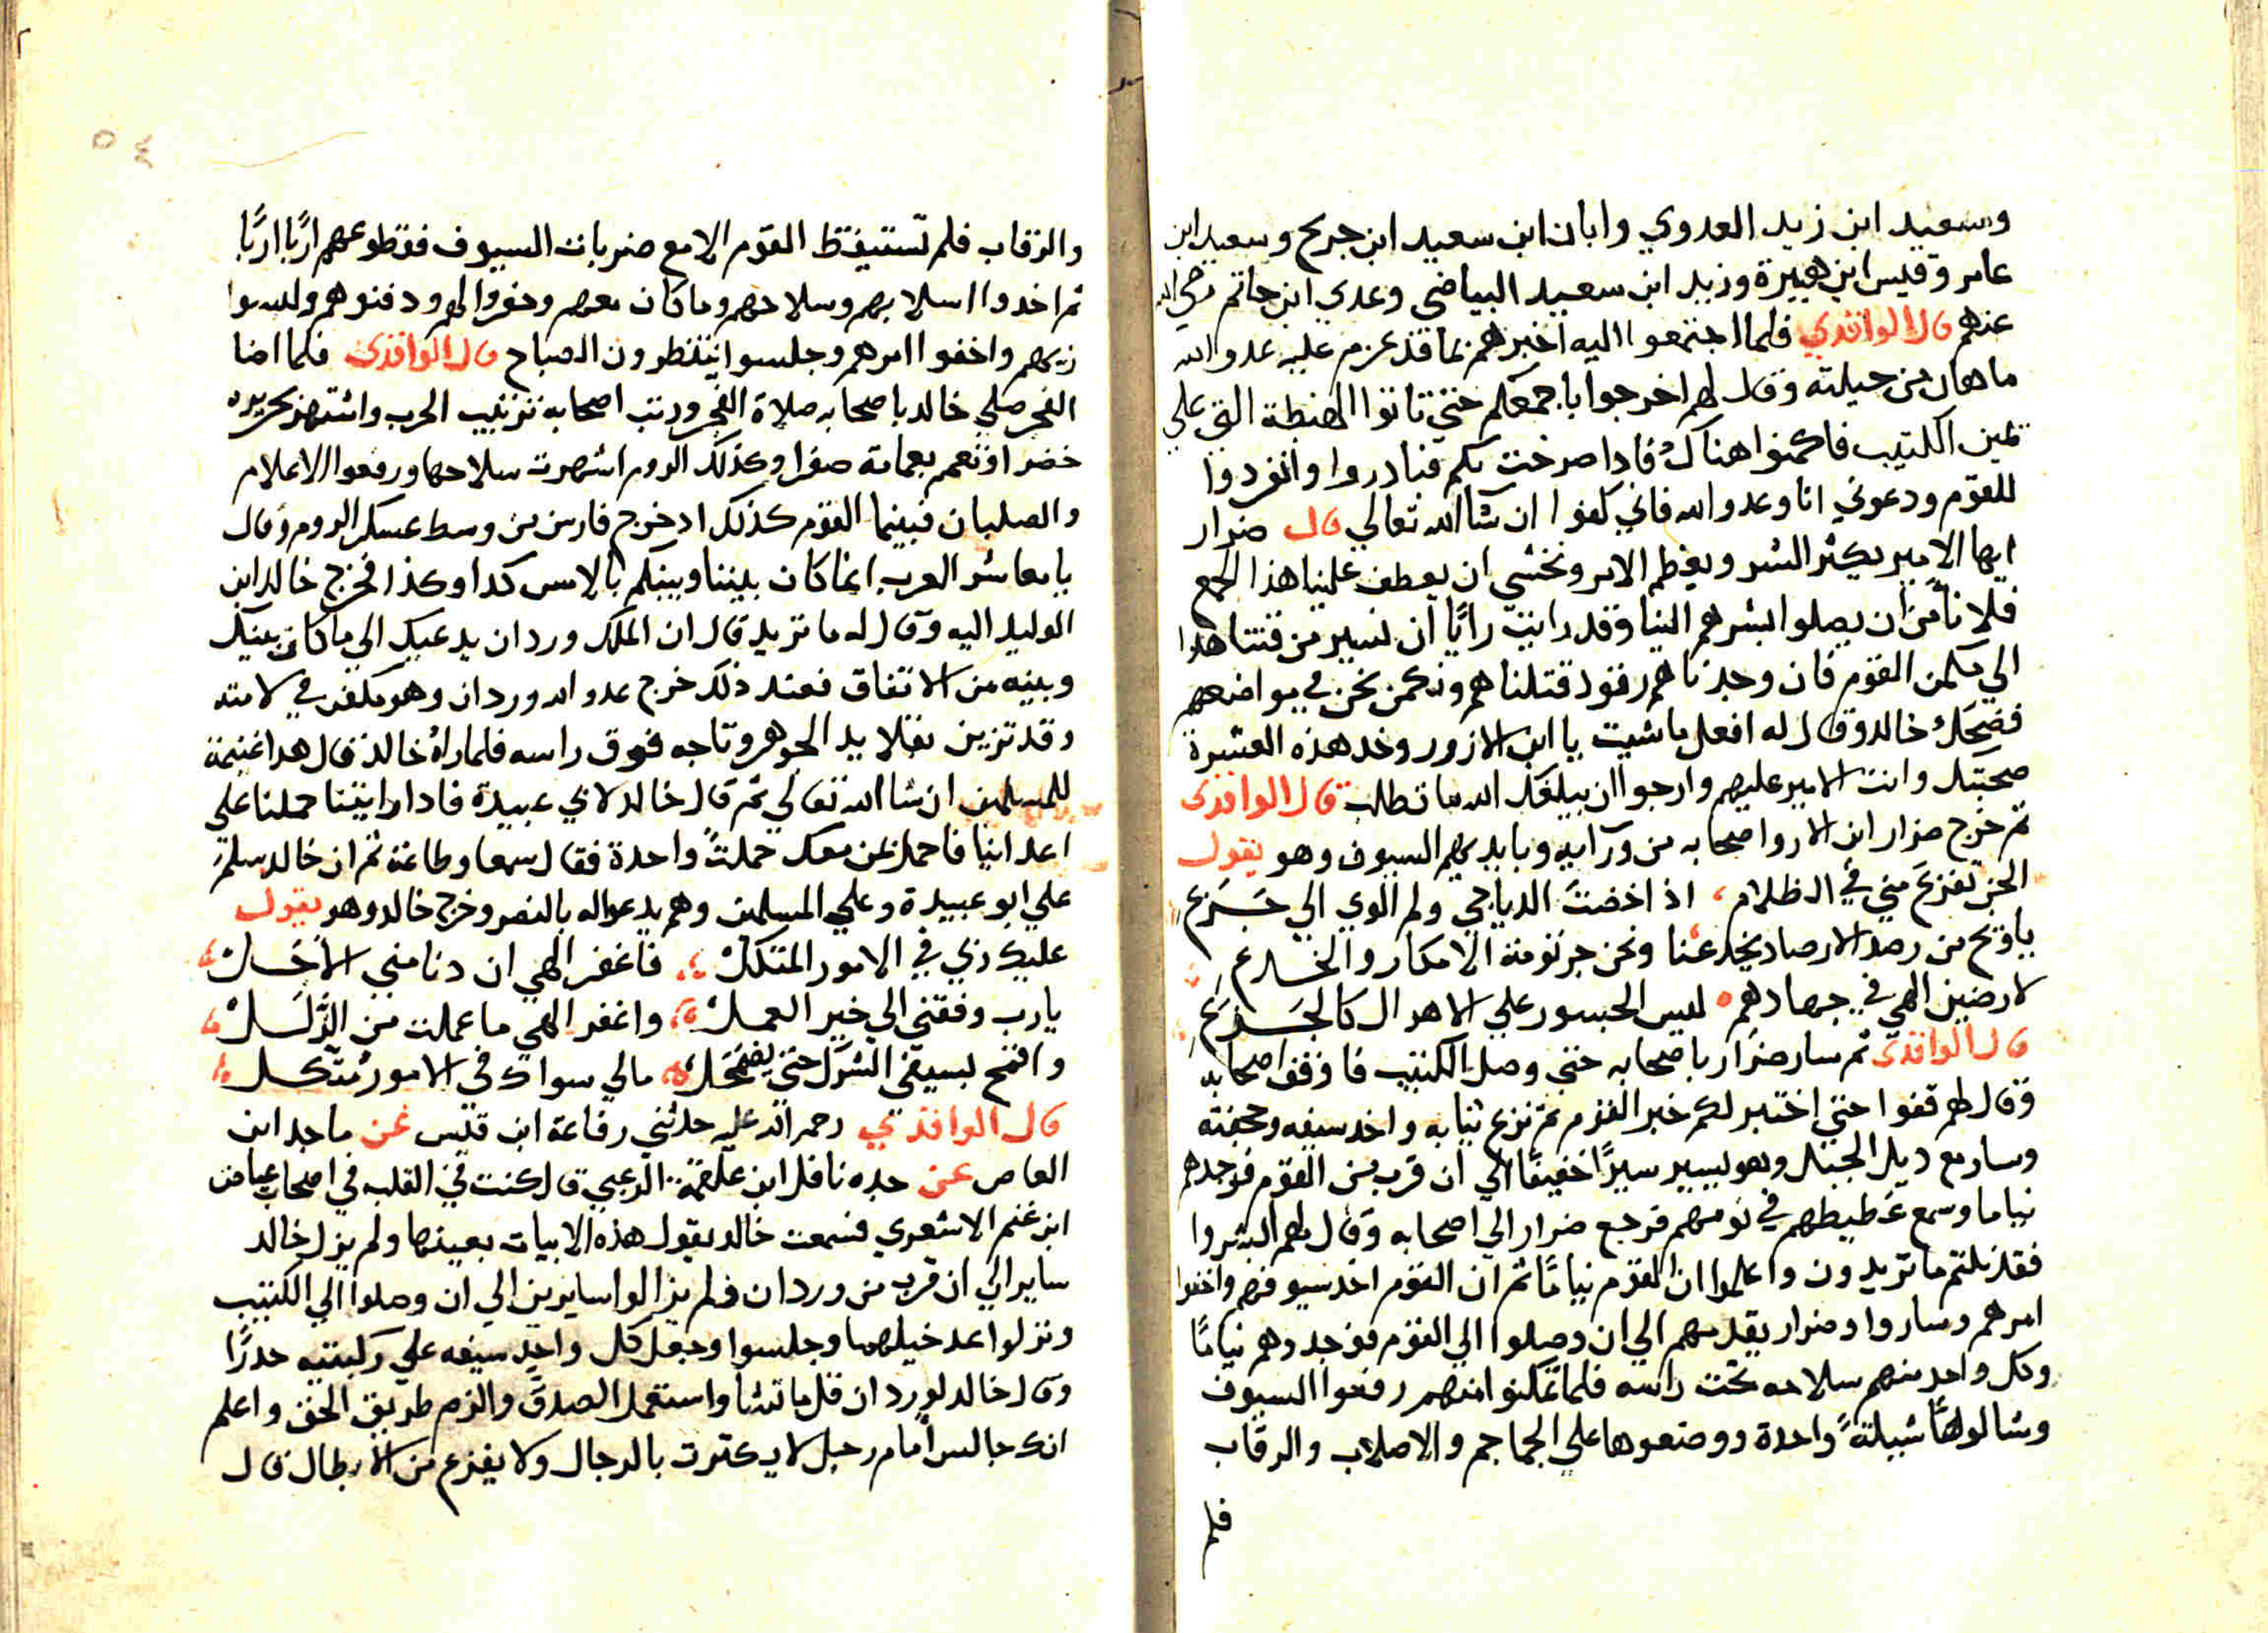 وسعيد ابن زيد العدوي وابان ابن سعيد ابن جريج وسعيد ابن
عامر وقيس ابن هبيرة وزيد ابن سعيد البياضي وعدي ابن حاتم رضي الله
عنهم قال الواقدي فلما اجتمعوا اليه اخبرهم بما قد عزم عليه عدو الله
ماهان من حيلته وقال لهم اخرجوا باجمعكم حتي تاتوا الهضبطة التي علي
يمين الكتيب فاكمنوا هناك فاذا صرخت بكم فبادروا وانفردوا
للقوم ودعوني انا وعدو الله فاني كفوا ان شاالله تعالي قال ضرار
ايها الامير يكثر الشر ويعظم الامر ونخشي ان يعطف علينا هذا الجمع
فلا نأمن ان يصلوا بشرهم الينا وقد رايت رايًا ان نسير من وقتنا هدا
الي مكمن القوم فان وجدناهم رقود قتلناهم ونكمن نحن في مواضعهم
فضحك خالد وقال له افعل ماشيت يا ابن الازور وخد هذه العشرة
صحبتك وانت الامير عليهم وارجوا ان يبلغك الله ما تطلب قال الواقدي
ثم خرج ضرار ابن الازور واصحابه من ورآيه وبايديهم السيوف وهو يقول
الجن تفزع مني في الظلام اذ اخضت الدياجي ولم الوي الي جزع
ياويح من رصد الارصاد يخدعنا ونحن جرثومة الامكار والخدع
لارضين الهي في جهادهم ليس الجسور علي الاهوال كالجزع
قال الواقدي ثم سار ضرار باصحابه حتي وصل الكتيب فاوقف اصحابه
وقال لهم قفوا حتي اختبر لكم خبر القوم ثم نزع ثيابه واخد سيفه وحجفته
وسار مع ديل الجبل وهو يسير سيرًا خفيفًا الي ان قرب من القوم فوجدهم
نياما وسمع غطيطهم في نومهم فرجع ضرار الي اصحابه وقال لهم ابشروا
فقد نلتم ما تريدون واعلموا ان القوم نيامًا ثم ان القوم اخد سيوفهم واخفوا
امرهم وساروا وضرار يقدمهم الي ان وصلوا الي القوم فوجدوهم نيامًا
وكل واحد منهم سلاحه تحت راسه فلما تمكنوا منهم رفعوا السيوف
وشالوها شيلةً واحدة ووضعوها علي الجماجم والاصلاب والرقاب
فلم
والرقاب فلم تستيقظ القوم الا مع ضربات السيوف فقطوعهم اربًا اربًا
ثم اخدوا اسلابهم وسلاحهم وما كان معهم وحفروا لهم ودفنوهم ولبسوا
زيهم واخفوا امرهم وجلسوا ينتظرون الصباح قال الواقدي فلما اضا
الفجر صلي خالد باصحابه صلاة الفجر ورتب اصحابه ترتيب الحرب واشتهر بحريره
خضرا وتعمم بعمامة صفرا وكذلك الروم اشهرت سلاحها ورفعوا الاعلام
والصلبان فبينما القوم كذلك اد خرج فارس من وسط عسكر الروم وقال
يا معاشر العرب انما كان بيننا وبينكم بالامس كدا وكذا فخرج خالد ابن
الوليد اليه وقال له ما تريد قال ان الملك وردان يدعيك الي ما كان بينك
وبينه من الاتفاق فعند ذلك خرج عدو الله وردان وهو مكفر في لامته
وقد تزين بقلايد الجوهر وتاجه فوق راسه فلما راه خالد قال هدا غنيمة
للمسلمين ان شاالله تعالي ثم قال خالد لابي عبيدة فادا رايتنا حملنا علي
اعداينا فاحمل بمن معك حملتً واحدة فقال سمعا وطاعة ثم ان خالد سلم
علي ابو عبيدة وعلي المسلمين وهم يدعوا له بالنصر وخرج خالد وهو يقول
عليك ربي في الامور المتكل فاغفر الهي ان دنا مني الاجل
يا رب وفقني الي خير العمل واغفر الهي ما عملت من الزلل
واقمح بسيفي الشرك حتي يضمحل مالي سواك في الامور متكل
قال الواقدي رحمه الله عليه حدثني رفاعة ابن قيس عن ماجد ابن
العاص عن جده نافل ابن علقمة الرعبي قال كنت في القلب في اصحاب عياض
ابن غنم الاشعري فسمعت خالد يقول هذه الابيات بعينها ولم يزل خالد
ساير الي ان قرب من وردان فلم يزالوا سايرين الي ان وصلوا الي الكتيب
ونزلوا عن خيلهما وجلسوا وجعل كل واحد سيفه علي ركبتيه حدرًا
وقال خالد لوردان قل ما تشأ واستعمل الصدق والزم طريق الحق واعلم
انك جالس أمام رجل لا يكترت بالرجال ولا يفزع من الابطال قال